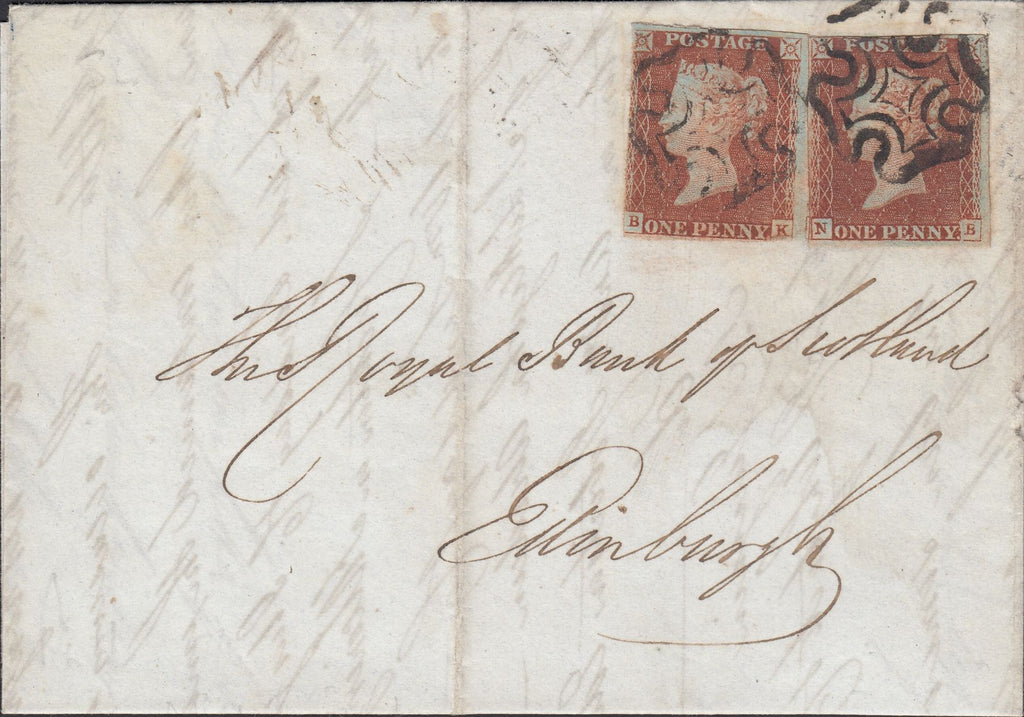 POSTAGE POSTAGE
B ONE PENNY K N ONE PENNY B
The Royal Bank of Scotland
Edinburgh